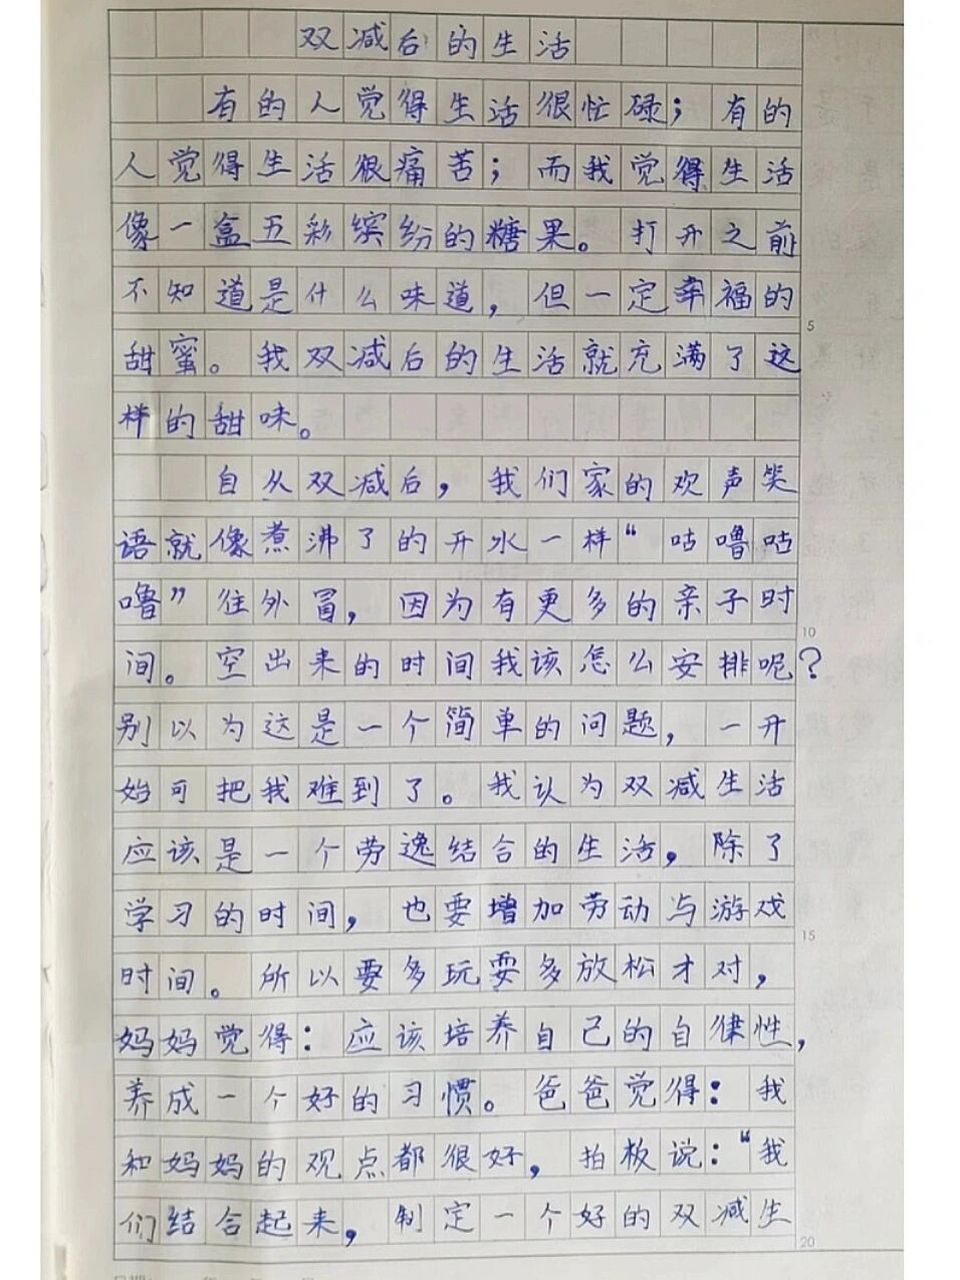 双减后的生活
有的人觉得生活很忙碌；有的
人觉得生活很痛苦；而我觉得生活
像一盒五彩缤纷的糖果。打开之前
不知道是什么味道，但一定幸福的
5
甜蜜。我双减后的生活就充满了这
样的甜味。
自从双减后，我们家的欢声笑
语就像煮沸了的开水一样“咕噜咕
噜”往外冒，因为有更多的亲子时
10
间。空出来的时间我该怎么安排呢？
别以为这是一个简单的问题，一开
始可把我难到了。我认为双减生活
应该是一个劳逸结合的生活，除了
学习的时间，也要增加劳动与游戏
15
时间。所以要多玩耍多放松才对，
妈妈觉得：应该培养自己的自律性，
养成一个好的习惯。爸爸觉得：我
和妈妈的观点都很好，拍板说：“我
们结合起来，制定一个好的双减生
20